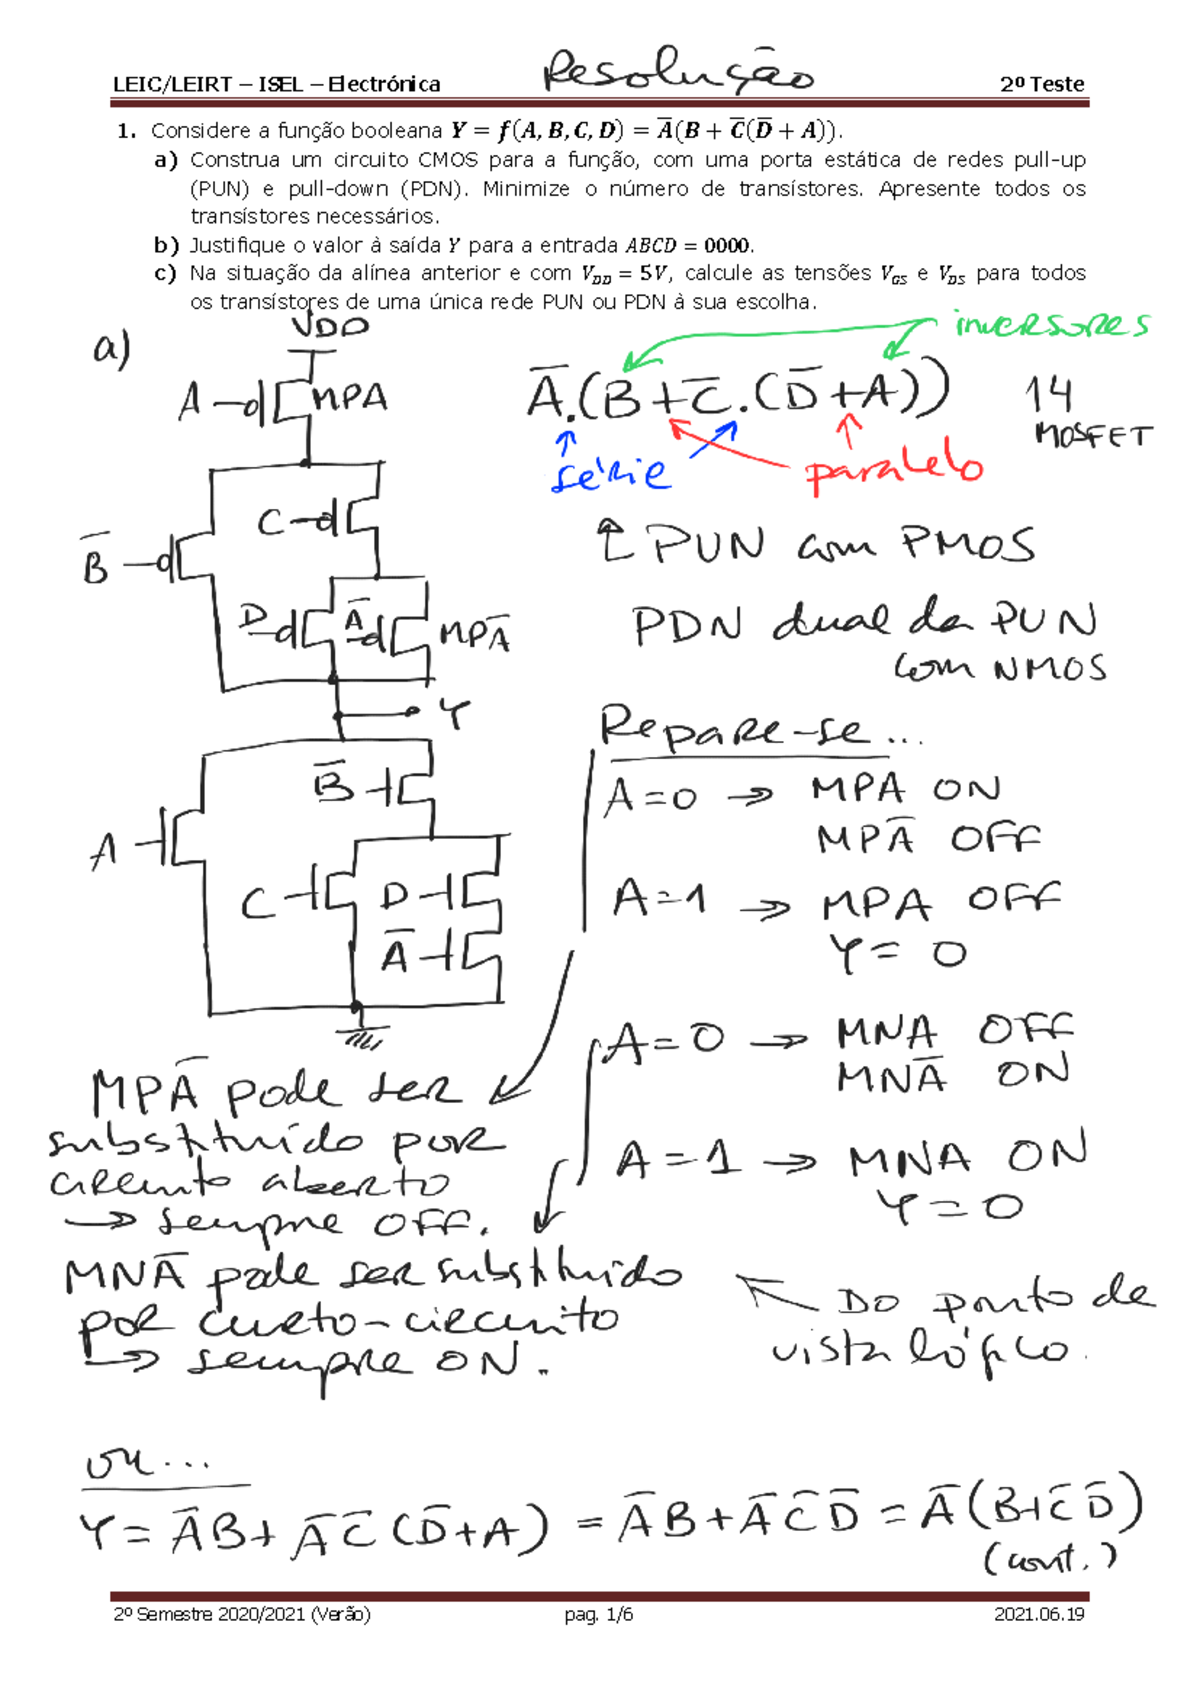 LEIC/LEIRT – ISEL – Electrónica Resolução 2º Teste
1. Considere a função booleana Y = f(A, B, C, D) = A̅(B + C̅(D̅ + A)).
a) Construa um circuito CMOS para a função, com uma porta estática de redes pull-up
(PUN) e pull-down (PDN). Minimize o número de transístores. Apresente todos os
transístores necessários.
b) Justifique o valor à saída Y para a entrada ABCD = 0000.
c) Na situação da alínea anterior e com V_DD = 5V, calcule as tensões V_GS e V_DS para todos
os transístores de uma única rede PUN ou PDN à sua escolha.
a)
VDD
inversores
A MPA
A̅.(B+C̅.(D̅+A))
14
MOSFET
série
paralelo
C
B̅
↑ PUN com PMOS
D A̅ MPA̅
PDN dual da PUN
com NMOS
Y
Repare-se...
B̅
A=0 → MPA ON
MPA̅ OFF
A
C D
A=1 → MPA OFF
A̅
Y = 0
A=0 → MNA OFF
MNA̅ ON
MPA̅ pode ser
substituído por
circuito aberto
→ sempre OFF.
A=1 → MNA ON
Y=0
MNA̅ pode ser substituído
por curto-circuito
→ sempre ON.
Do ponto de
vista lógico.
ou...
Y = A̅B + A̅C̅(D̅+A) = A̅B + A̅C̅D̅ = A̅(B+C̅D̅)
(cont.)
2º Semestre 2020/2021 (Verão) pag. 1/6 2021.06.19